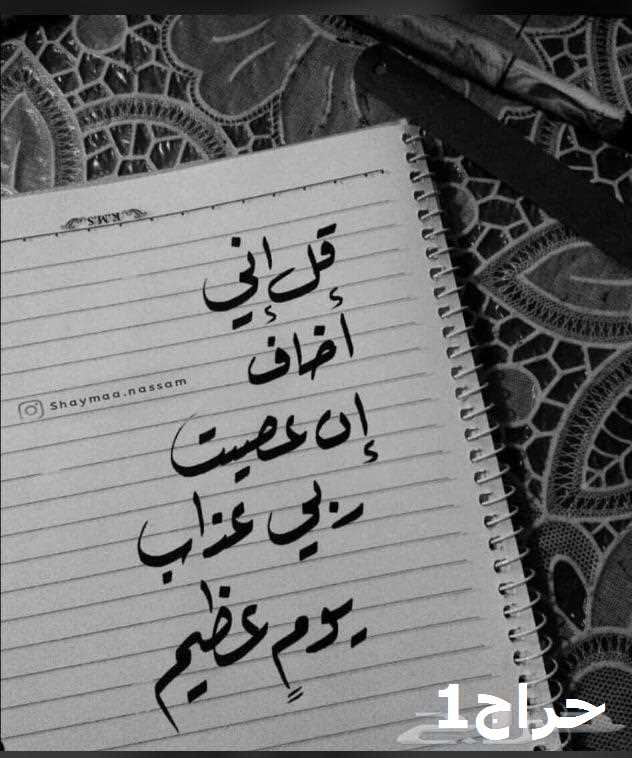 R.M.S
قل إني
أخاف
Shaymaa.nassam
إن عصيت
ربي عذاب
يومٍ عظيم
حراج1